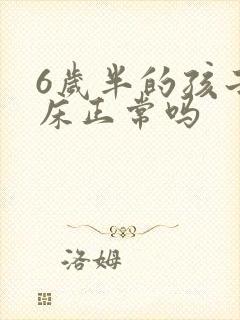 6岁半的孩子
床正常吗
洛姆